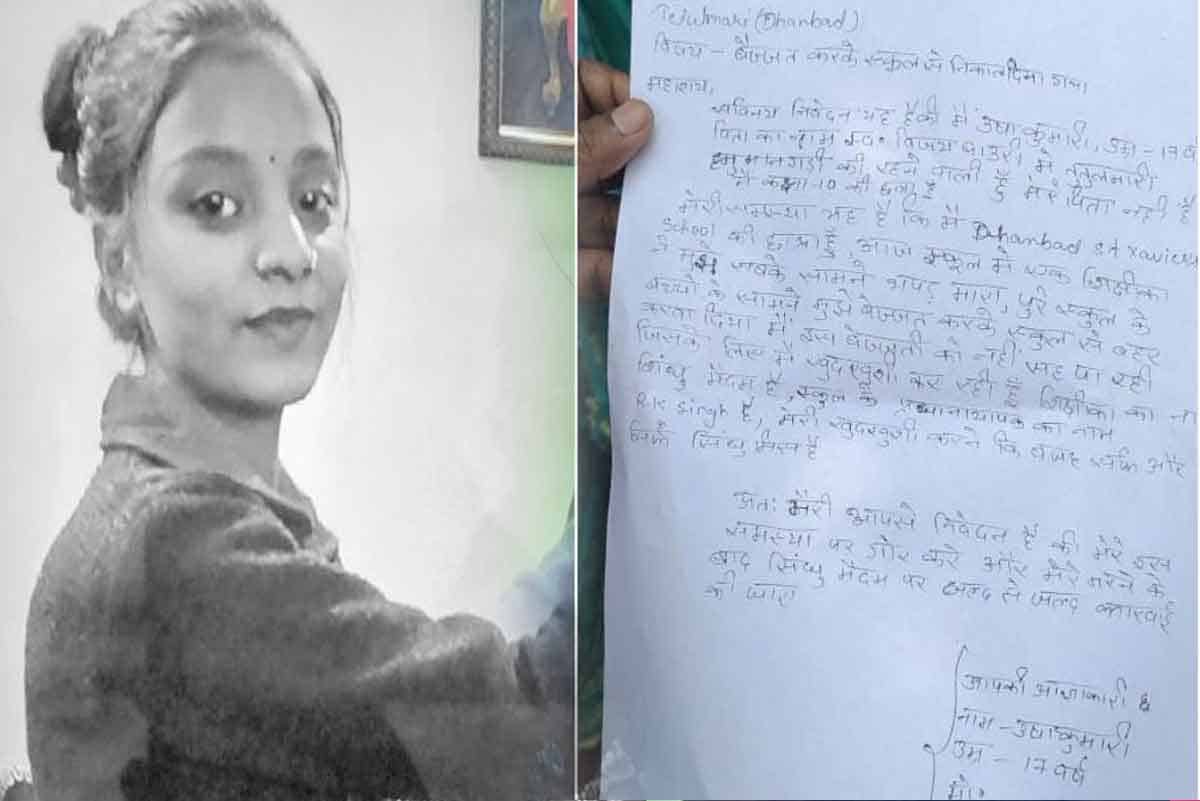 Tetulmari (Dhanbad)
विषय - बेज्जत करके स्कूल से निकाल दिया गया
महाशय,
सविनय निवेदन यह है की मैं उषा कुमारी, उम्र - 17 व
पिता का नाम स्व॰ विजय बाउरी में तेतुलमारी
हनुमानगडी की रहने वाली हूँ मेरे पिता नहीं है
मैं कक्षा-10 की छात्रा हूँ
मेरी समस्या यह है कि मैं Dhanbad st xaviers
School की छात्रा हूँ, आज स्कूल में एक शिक्षीका
ने मुझे सबके सामने थपड़ मारा, पुरे स्कुल के
बच्चों के सामने मुझे बेज्जत करके स्कुल से बहर
करवा दिया मैं इस बेजती को नहीं सह पा रही
जिसके लिए मैं खुदखुशी कर रही हूँ शिक्षीका का ना
सिंधु मैडम है, स्कूल के प्रधानाध्यापक का नाम
R.K singh है, मेरी खुदखुशी करने कि वजह सर्फ और
सिर्फ सिंधु मिस है
अतः मेरी आपसे निवेदन है की मेरे इस
समस्या पर गोर करे और मेरे मरने के
बाद सिंधु मैडम पर जल्द से जल्द कारवाई
की जाए
आपकी आज्ञाकारी
नाम - उषा कुमारी
उम्र - 17 वर्ष
मो॰